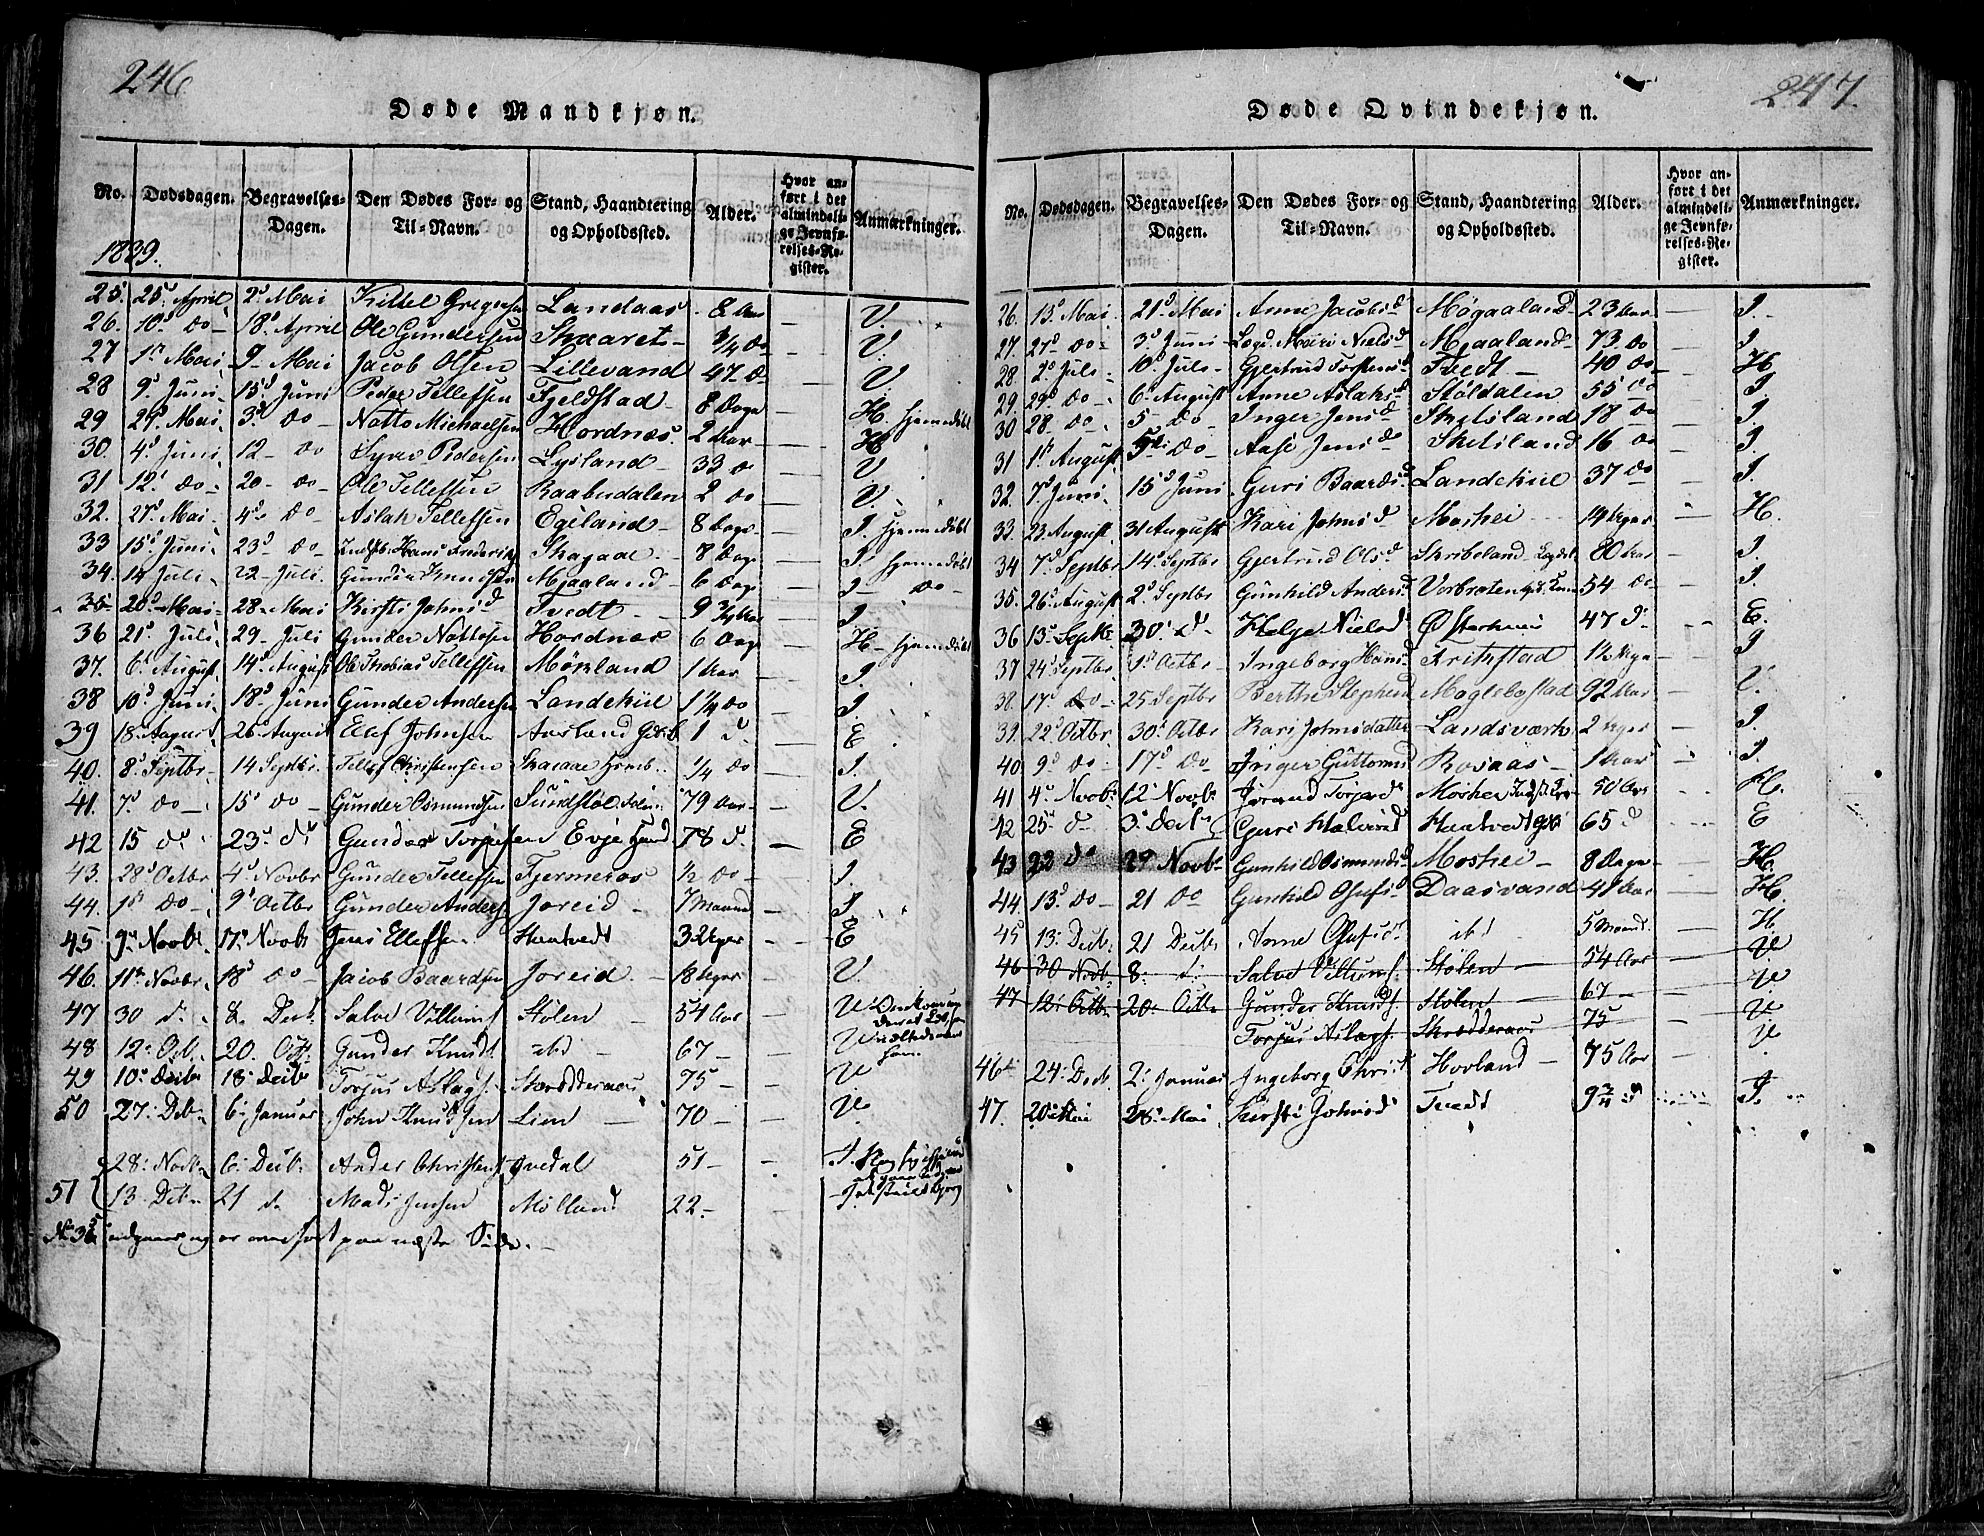 246
Døde Mandkjøn.
No.
Dødsdagen.
Begravelses-
Dagen.
Den Dødes For- og
Til-Navn.
Stand, Haandtering
og Opholdssted.
Alder.
Hvor an-
ført i det
almindeli-
ge Jevnfø-
relses-Re-
gister.
Anmærkninger.
1839.
25. 25d April 2d Mai Kittel Gregersen Landaas 8 Aar — V.
26. 10d do 18d April Ole Gundersen Skaaret 3/4 do — V.
27 1st Mai 9 Mai Jacob Olsen Lillevand 47 do — V.
28 9d Juni 15d Juni Peder Tellefsen Fjeldstad 8 Dage — H. Hjemmedøbt
29 29d Mai 3d do Notto Michaelsen Hordnes 2 Aar — H.
30. 4d Juni 12 do Syvert Pedersen Lysland 33 do — V.
31 12d do 20 do Ole Tellefsen Raabudalen 2 do — V.
32. 27d Mai 4d do Aslak Tellefsen Egeland 8 Dage — I. Hjemmedøbt
33 15d Juni 23d do Hans Frederik Skaaae 8 Dage — I. Hjemmedøbt
34. 14 Juli 22 Juli Gunder Knudsen Mjaaland 6 Dage — I — do —
35 20d Mai 28 Mai Kirsti Johnsd Tvedt 9 3/4 Aar — I
36 21d Juli 29 Juli Gunder Nottosen Hordnes 6 Dage — H — Hjemmedøbt
37. 6d August 14d August Ole Thobias Tellefsen Mørland 1 Aar — I.
38 10d Juni 18d Juni Gunder Andersen Landekiil 1 1/4 do — I
39 18 August 26 August Ellef Johnsen Aasland 1 d. — E
40. 8d Septbr 14 Septbr. Tellef Christensen Skaaae 1/4 do — I.
41. 7d do 15d do Gunder Osmundsen Sundstøl 79 Aar — V.
42 15 d 23d d Gunder Torjusen Evje 78 d. — E
43. 28d Octbr 4d Novbr Gunder Tellefsen Fjermeros 1/2 do — I.
44. 1st do 9d Octbr Gunder Anders Joreid 7 Maaned — I
45 9 Novbr. 17d Novbr Jens Ellefsen Haatvedt 3 Uger — E
46. 11te Novbr. 18d do Jacob Baardsen Joreid 18 Uger — V.
47 30 d. 8 Decbr. Salve Villums Stølen 54 Aar — V
48 12 Oct. 20. Oct. Gunder Knuds. ibd 67 — V
49 10d Decbr 18 Decbr Torjus Aslags. Skræderaas 75 — V
50 27. Decbr 6. Januar John Knudsen Lien 70 — V.
28. Novbr 6. Decbr. Anders Christens. Qvedal 51 — I.
51 13. Decbr 21 d. Mads Jensen Mølland 22 —
No 35 udgaar og er overført paa næste Side. —
247.
Døde Qvindekjøn.
No.
Dødsdagen.
Begravelses-
Dagen.
Den Dødes For- og
Til-Navn.
Stand, Haandtering
og Opholdssted.
Alder.
Hvor an-
ført i det
almindeli-
ge Jevnfø-
relses-Re-
gister.
Anmærkninger.
26. 13d Mai 21d Mai Anne Jacobsd Møgaaland 23 Aar — I.
27. 27d do 3d Juni Mari Nielsd Mjaaland 73 do — I
28. 2d Juli 10d Juli Gjertrud Torstensd Tvedt 40 do — H.
29. 29d do 6d August Anne Aslaksd Støldalen 55 do — I
30 28. do 5 do Inger Jensd Skeisland 18 do — I.
31 1st August 5 do Aase Jensd Skeisland 16 do — I.
32. 7d Juni 15d Juni Guri Baardsd Landekiil 37 do — I.
33. 23 August 31 August Kari Johnsd Moshei 14 Uger — H.
34 7d Septbr 14d Septbr Gjertrud Olsd Skribeland 80 Aar — I.
35. 26d August 2d Septbr Gunhild Andersd Vorbraten 54 do — I.
36 13d Septbr 30 d. Helge Nielsd Østerhuus 47 d. — E.
37 24d Septbr 1st Octbr Ingeborg Hansd Frithstad 12 Uger — I
38. 17d do 25 Septbr Berthe Stephensd Møglebostad 92 Aar — V.
39. 22d Octbr. 30d Octbr Kari Johnsdatter Landsværk 2 Uger — I.
40 9d do 17d do Inger Guttormsd Rosaas 1 Aar — I.
41 4d Novbr 12d Novbr Jorand Torjersd Moshei 50 Aar — H.
42 25d d. 3d Decbr Guri Halvorsd Haatvedt 65 d — E
43 22 do 29 Novbr Gunhild Osmundsd Moshei 8 Dage — H.
44. 13d do 21 do Gunhild Olufsd Daasvand 41 Aar — H.
45 13. Decbr. 21 Decbr. Anne Olufsd ibd 5 Maaned. — H
46 30 Novbr 8. d. Salve Villums. Stølen 54 Aar — V
47 12. Octbr 20. Octbr Gunder Knuds. Stølen 67 — V
Torjus Aslags. Skræderaas 75 — V
46 24. Decbr. 2. Januar Ingeborg Christ. Hovland 75 Aar V.
47. 20d Mai 28d Mai Kirsti Johnsd Tvedt 9 3/4 d I.